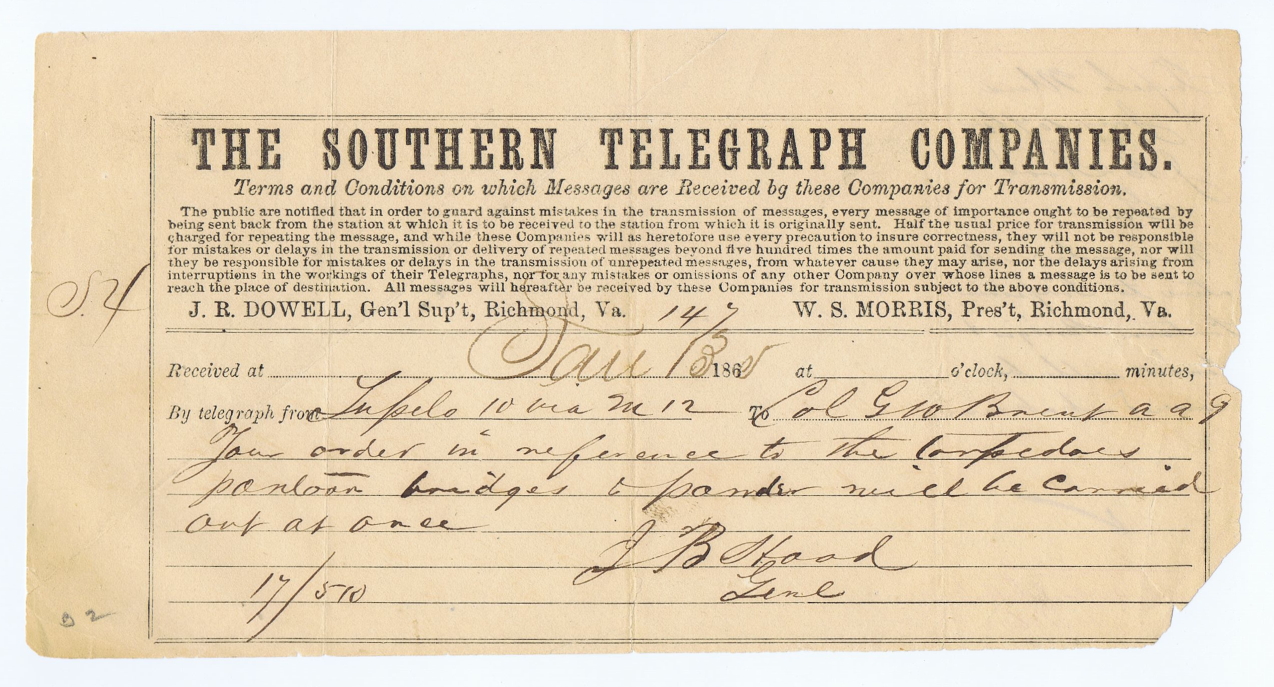 THE SOUTHERN TELEGRAPH COMPANIES.
Terms and Conditions on which Messages are Received by these Companies for Transmission.
The public are notified that in order to guard against mistakes in the transmission of messages, every message of importance ought to be repeated by
being sent back from the station at which it is to be received to the station from which it is originally sent. Half the usual price for transmission will be
charged for repeating the message, and while these Companies will as heretofore use every precaution to insure correctness, they will not be responsible
for mistakes or delays in the transmission or delivery of repeated messages beyond five hundred times the amount paid for sending the message, nor will
they be responsible for mistakes or delays in the transmission of unrepeated messages, from whatever cause they may arise, nor the delays arising from
interruptions in the workings of their Telegraphs, nor for any mistakes or omissions of any other Company over whose lines a message is to be sent to
reach the place of destination. All messages will hereafter be received by these Companies for transmission subject to the above conditions.
J. R. DOWELL, Gen'l Sup't, Richmond, Va. W. S. MORRIS, Pres't, Richmond, Va.
Received at Jan 13 1865 at o'clock, minutes,
By telegraph from Tupelo 10 via M 12 To Col G W Brent a a g
Your order in reference to the torpedoes
pontoon bridges & powder will be carried
out at once
J B Hood
Genl
17/510